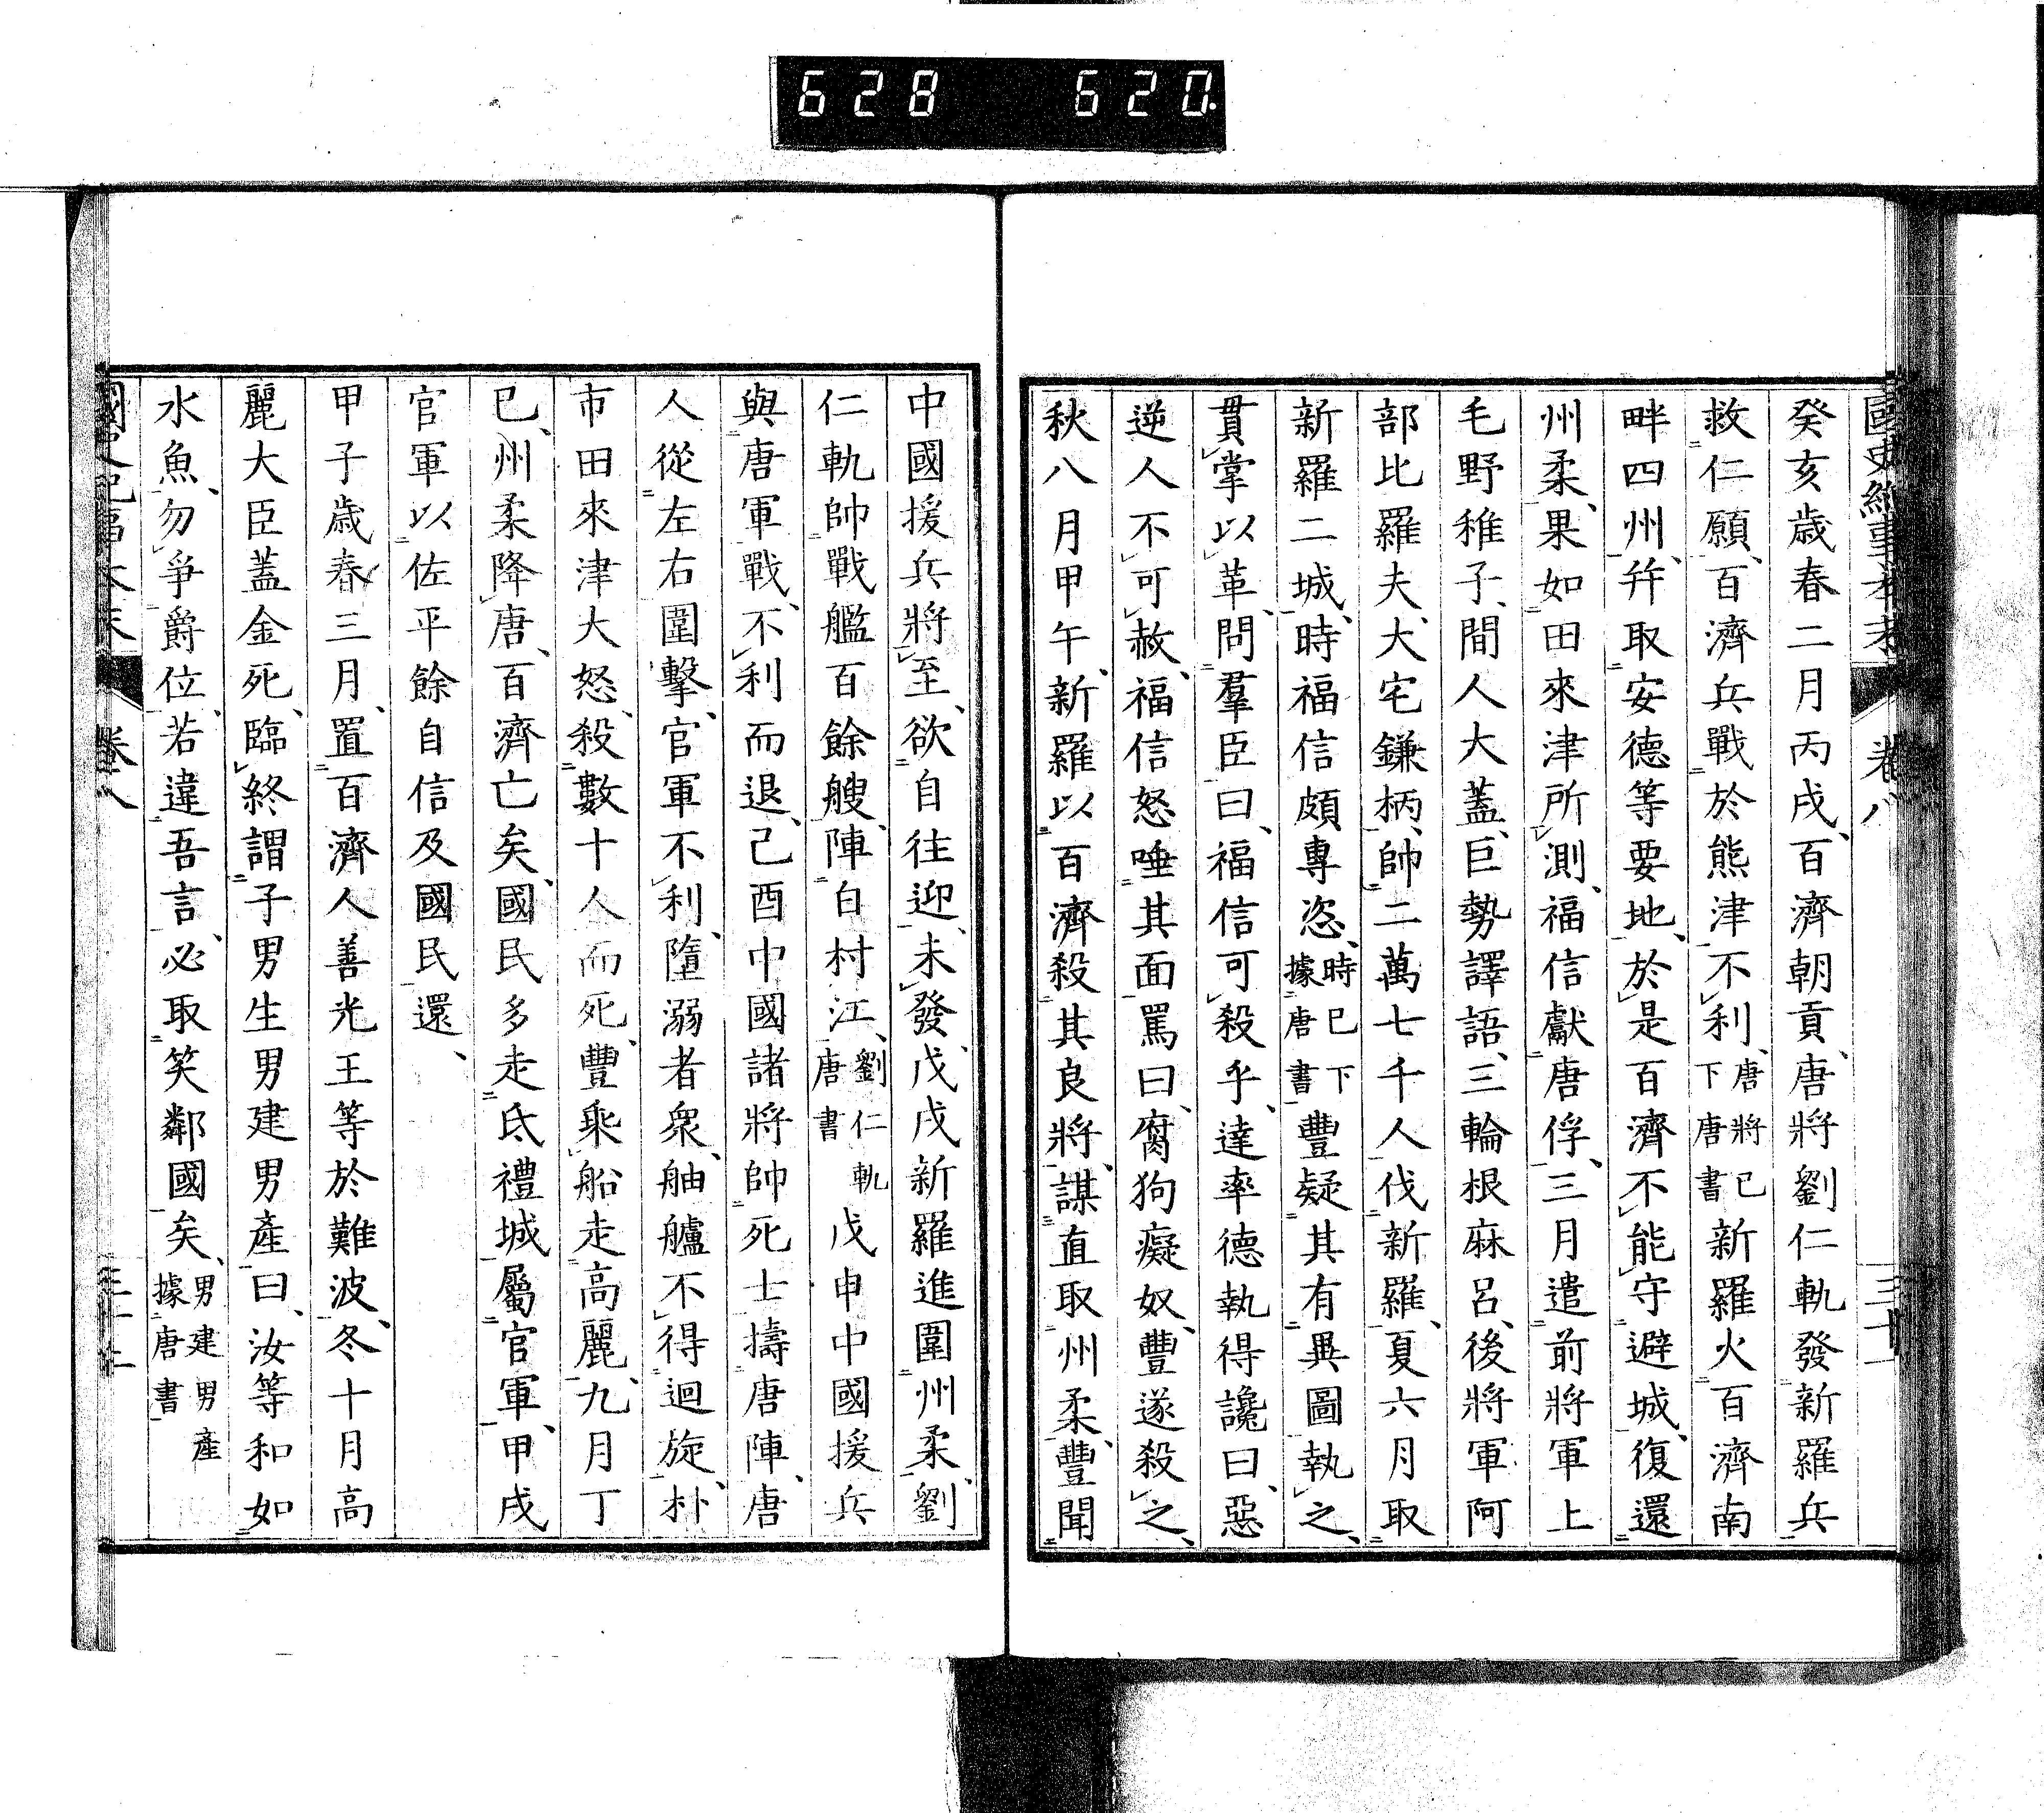 628 620
國史紀事本末 卷八 三十一
癸亥歳春二月丙戌、百濟朝貢、唐將劉仁軌發新羅兵
救仁願、百濟兵戰於熊津、不利、唐將已下唐書新羅火百濟南
畔四州、幷取安德等要地、於是百濟不能守避城、復還
州柔、果如田來津所測、福信獻唐俘、三月遣前將軍上
毛野稚子、間人大蓋、巨勢譯語、三輪根麻呂、後將軍阿
部比羅夫、大宅鎌柄、帥二萬七千人伐新羅、夏六月取
新羅二城、時福信頗專恣、時已下據唐書豐疑其有異圖執之、
貫掌以革、問羣臣曰、福信可殺乎、達率德執得讒曰、惡
逆人不可赦、福信怒唾其面罵曰、腐狗癡奴、豐遂殺之、
秋八月甲午、新羅以百濟殺其良將、謀直取州柔、豐聞
中國援兵將至、欲自往迎、未發、戊戌新羅進圍州柔、劉
仁軌帥戰艦百餘艘、陣白村江、劉仁軌唐書戊申中國援兵
與唐軍戰、不利而退、己酉中國諸將帥死士擣唐陣、唐
人從左右圍擊、官軍不利、墮溺者衆、舳艫不得迴旋、朴
市田來津大怒、殺數十人而死、豐乘船走高麗、九月丁
巳、州柔降唐、百濟亡矣、國民多走氐禮城屬官軍、甲戌
官軍以佐平餘自信及國民還、
甲子歳春三月、置百濟人善光王等於難波、冬十月高
麗大臣蓋金死、臨終謂子男生男建男產曰、汝等和如
水魚、勿爭爵位、若違吾言、必取笑鄰國矣、男建男產據唐書
卷八